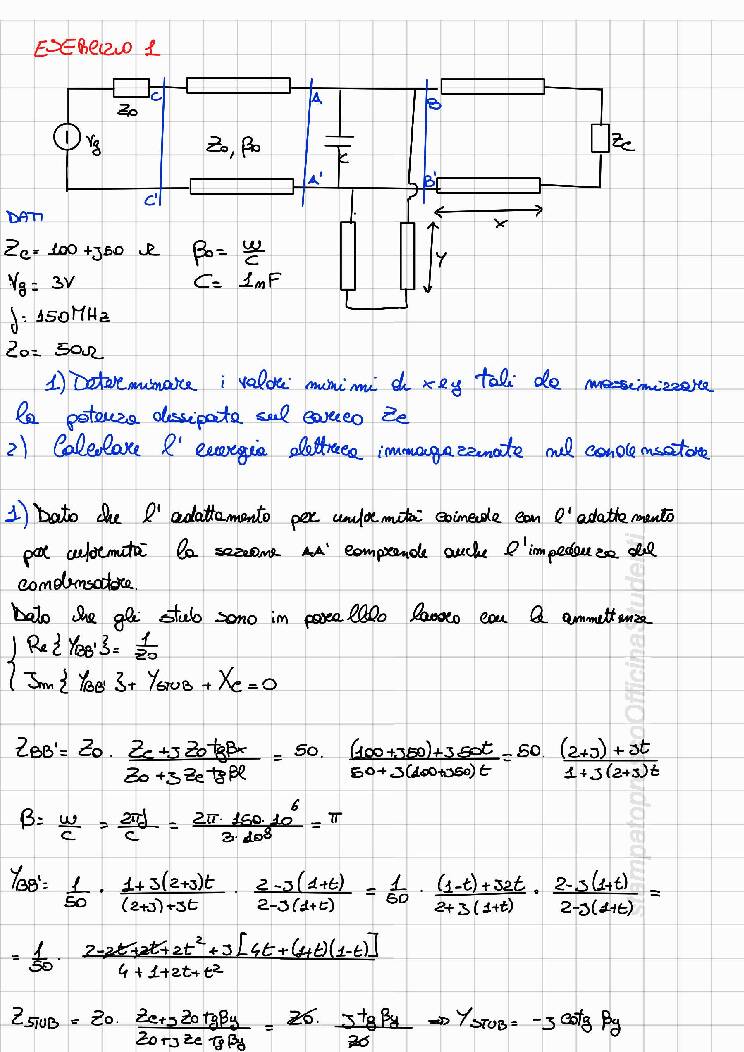 ESERCIZIO 1
C A B
Z0 Vg Z0, β0 C Zc
C' A' B'
x
y
DATI
Zc = 100 + j50 Ω β0 = ω/c
Vg = 3V C = 1nF
f: 150MHz
Z0 = 50Ω
1) Determinare i valori minimi di x e y tali da massimizzare
la potenza dissipata sul carico Zc
2) Calcolare l'energia elettrica immagazzinata nel condensatore
1) Dato che l'adattamento per uniformità coincide con l'adattamento
per uniformità la sezione AA' comprende anche l'impedenza del
condensatore.
Dato che gli stub sono in parallelo lavoro con le ammettenze
{ Re{YBB'} = 1/Z0
{ Im{YBB'} + YSTUB + Xc = 0
ZBB' = Z0 · (Zc + j Z0 tgβx)/(Z0 + j Zc tgβl) = 50 · ((100+j50) + j50t)/(50 + j(100+j50)t) = 50 · ((2+j) + jt)/(1 + j(2+j)t)
β = ω/c = 2πf/c = (2π · 150 · 10^6)/(3 · 10^8) = π
YBB' = 1/50 · (1 + j(2+j)t)/((2+j) + jt) · (2 - j(1+t))/(2 - j(1+t)) = 1/50 · ((1-t) + j2t)/(2 + j(1+t)) · (2 - j(1+t))/(2 - j(1+t)) =
= 1/50 · (2 - 2t + 2t + 2t² + j[4t + (1+t)(1-t)])/(4 + 1 + 2t + t²)
ZSTUB = Z0 · (Zc + j Z0 tgβy)/(Z0 + j Zc tgβy) = Z0 · (j tgβy)/Z0 ⇒ YSTUB = -j cotg βy
stampatopressoOfficinaStudenti